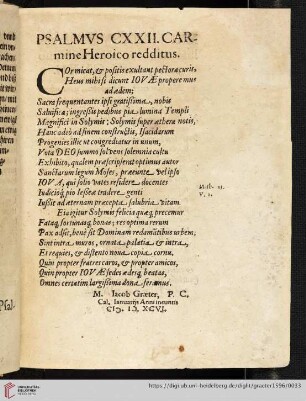 PSALMVS CXXII. CAR-
mine Heroico redditus.
COr micat, & positis exultant pectora curis,
Heus mihi si dicunt IOVÆ propere mus
ad ædem;
Sacra frequentantes ipsi gratissima, nobis
Salvifica; ingressis pedibus pia lumina Templi
Magnifici in Solymis; Solymis super æthera notis,
Hanc adeò ad finem constructis, Isacidarum
Progenies illuc ut congrediatur in unum,
Vota DEO summo solvens solemnia cultu
Exhibito, qualem præscripserat optimus autor
Sanctarum legum Moses, præeunte vel ipso
IOVA, qui solio vates residere docentes
Iudiciaq; pio Iesseæ tradere genti
Iussit ad æternam præcepta salubria vitam.
Eia igitur Solymis felicia quæq; precemur
Fataq; fortunasq; bonas; res optima rerum
Pax adsit, benè sit Dominum redamantibus urbem,
Sint intra muros, ornata palatia & intra,
Et requies, & distento nova copia cornu,
Quin propter fratres caros, & propter amicos,
Quin propter IOVÆ sedes adytaq; beatas,
Omnes certatim largissima dona feramus.
M. Iacob Græter, P. C.
Cal. Ianuarijs Anni ineuntis
CIↃ. IↃ. XCVI.
Matth. 11.
https://digi.ub.uni-heidelberg.de/diglit/graeter1596/0033